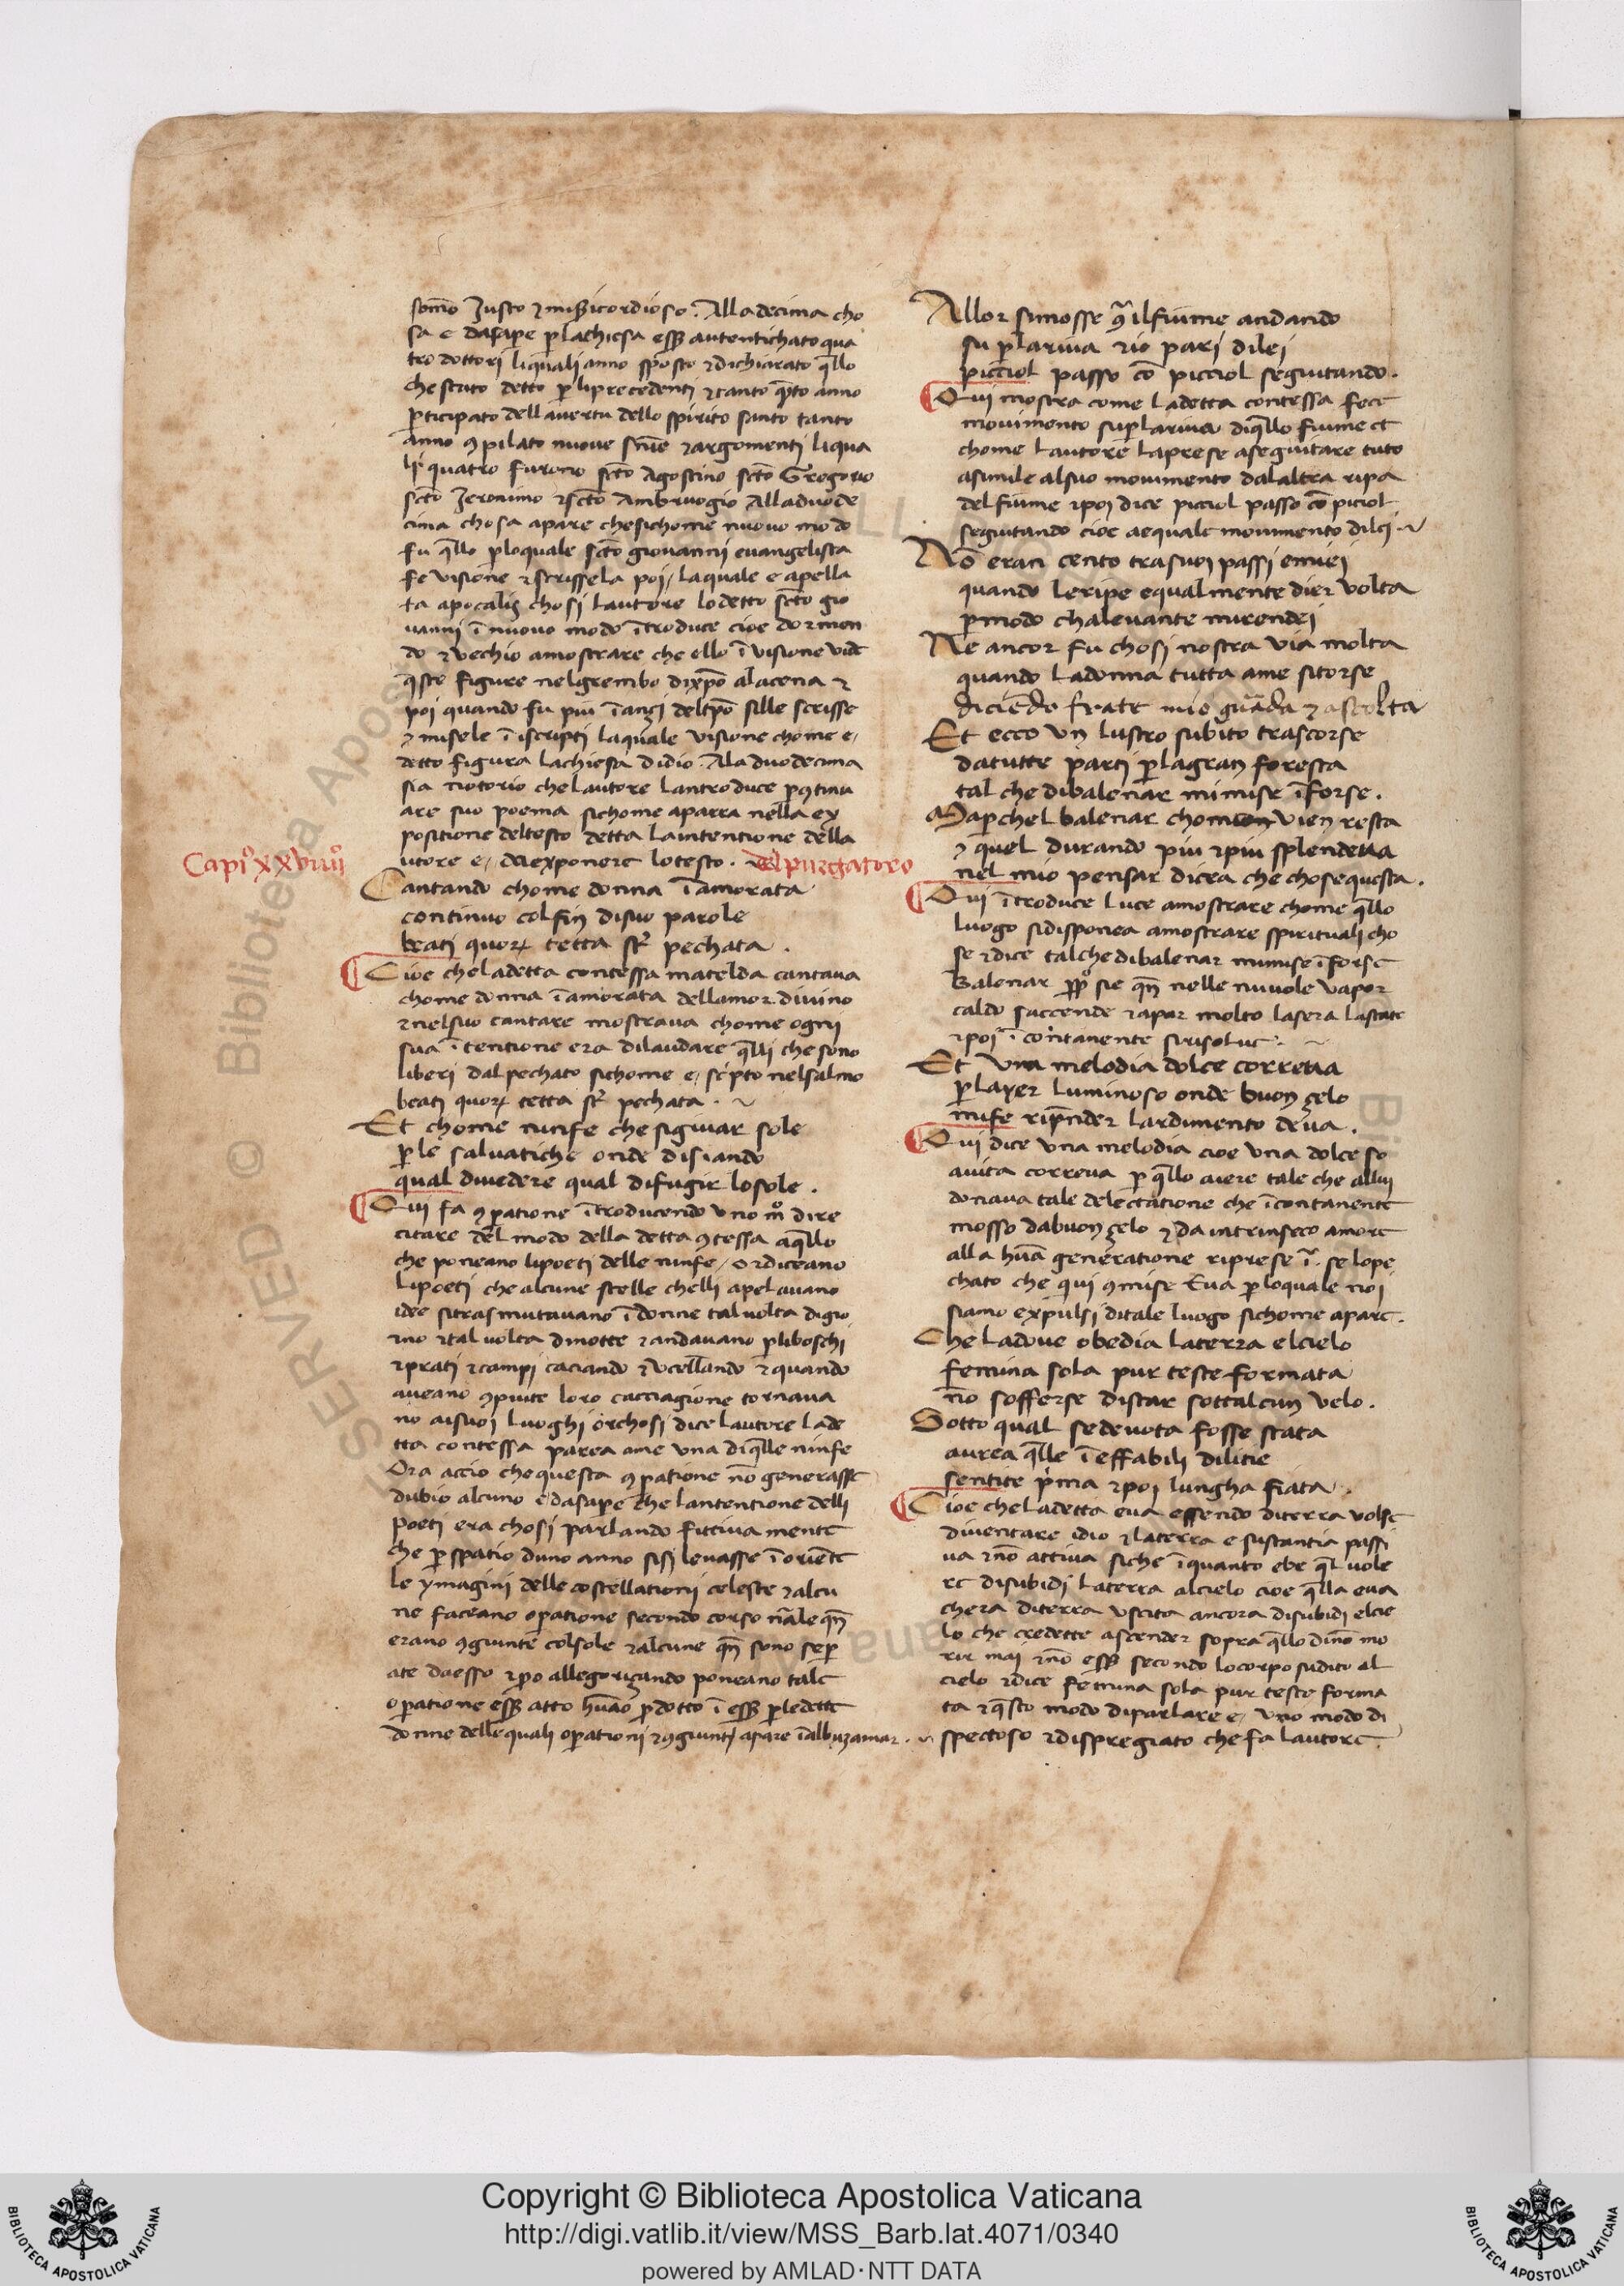 som̄o Justo ⁊ misericordioso. Alla decima cho
sa e dasape p̲ lachiesa ess̲ autentichato qua
tro dottori liquali anno sposto ⁊ dichiarato q̄llo
che stato detto p̲ liprecedenti ⁊ tanto q̄to anno
p̲ticipato dellavertu dello spirito santo tanto
anno ꝯpilato nuove sn̄ie ⁊ argomenti liqua
lj quatro furono sc̄to Agostino sc̄to Gregorio
sc̄to Jeronimo ⁊ sc̄to Ambruogio Alla duode
cima chosa apare chesichome nuovo modo
fu q̄llo p̲ loquale sc̄to giovanni evangelista
fe visione ⁊ scrissela poi, laquale e apella
ta apocalis chosi lautore lodetto sc̄to gio
vanni ī nuovo modo ītroduce cioe dormen
do ⁊ vechio amostrare che ello ī visione vide
q̄ste figure nelgrembo dixp̄o alacena ⁊
poi quando fu piu īanzi deltp̄o sille scrisse
⁊ misele ī iscripti laquale visione chome e,
detto figura lachiesa didio. Ala duodecima
sia notorio chelautore lantroduce p̲ ꝯtinu
are suo poema sichome aparra nella ex
positione deltesto detta laintentione della
utore e, daexponere lotesto. del purgatoro
Capi⁰ xxviiij⁰
Cantando chome donna īamorata
continuo colfin disuo parole
beati quorꝝ tetta st̄ pechata.
Cioe cheladetta contessa matelda cantava
chome donna īamorata dellamor divino
⁊ nelsuo cantare mostrava chome ogni
sua ītentione era dilaudare q̄lli che sono
liberi dal pechato sichome e, sc̄pto nelsalmo
beati quorꝝ tetta st̄ pechata.
Et chome ninfe chesigivar sole
p̲ le salvatiche onde disiando
qual divedere qual difugir losole.
Qui fa ꝯparatione ītroducendo uno m⁰ dire
citare del modo della detta ꝯtessa aq̄llo
che poneano lipoeti delle ninfe, ordiceano
lipoeti che alcune stelle chelli apelavano
idee sitrasmutavano ī donne talvolta digio
rno ⁊ talvolta dinotte ⁊ andavano p̲ liboschi
⁊ prati ⁊ campi caciando ⁊ vcellando ⁊ quando
aveano ꝯpiute loro cacciagione tornava
no aisuoi luoghi orchosi dice lautore lade
tta contessa parea ame una diq̄lle ninfe
Ora accio che questa ꝯparatione nō generasse
dubio alcuno e dasape che lantentione delli
poeti era chosi parlando fittiva mente
che p̲ spatio duno anno sisi levasse ī oriēte
le ymagini delle costellationi celeste ⁊ alcu
ne faceano op̲atione secondo corso nāle qn̄
erano ꝯgiunte colsole ⁊ alcune qn̄ sono sep̲
ate daesso ⁊ p̲o allegorizando poneano tale
op̲atione ess̲ atto hūao p̲dotto ī ess̲ p̲ ledette
donne dellequali op̲ationi ⁊ ꝯgiuntj apare ī albuzamar.
Allor simosse ꝯtra ilfiume andando
su p̲ lariva ⁊ io pari dilei
picciol passo cō picciol seguitando.
Qui mostra come ladetta contessa fece
movimento sup̲ lariva diq̄llo fiume et
chome lautore laprese aseguitare tuto
asimile alsuo movimento dalaltra ripa
del fiume ⁊ poi dice picciol passo cō piciol
seguitando cioe aequale movimento dilei.
Nō eran cento trasuoi passi emiei
quando leripe equalmente dier volta
p̲ modo chalevante mirendei
Ne ancor fu chosi nostra via molta
quando ladonna tutta ame sitorse
diciēdo frate mio guarda ⁊ ascolta
Et ecco un lustro subito trascorse
datutte parti p̲ lagran foresta
tal che dibalenar mimise ī forse.
Map̲chel balenar chomen vien resta
⁊ quel durando piu ⁊ piu splendeva
nel mio pensar dicea che chosequesta.
Qui ītroduce luce amostrare chome q̄llo
luogo sidisponea amostrare spirituali cho
se ⁊ dice talchedibalenar mimise ī forse
Balenar pp̲⁰ sie qn̄ nelle nuvole vapor
caldo saccende ⁊ apar molto lasera lastate
⁊ poi ī contanente sirisolve.
Et una melodia dolce correva
p̲ layer luminoso onde buon zelo
mife rip̄nder lardimento deva.
Qui dice una melodia cioe una dolce so
avita correva p̲ q̄llo aiere tale che allui
donava tale delectatione che ī contanente
mosso dabuon zelo ⁊ da intrinseco amore
alla hūa generatione riprese ī se lope
chato che qui ꝯmise Eva p̲ loquale noi
siamo expulsi ditale luogo sichome apare.
Che ladove obedia laterra elcielo
femina sola pur teste formata
nō sofferse distar sottalcun velo.
Sotto qual sedevota fosse stata
aurea q̄lle ī effabili dilitie
sentite p̲ma ⁊ poi lungha fiata.
Cioe cheladetta eva essendo diterra volse
diventare idio ⁊ laterra e sustantia passi
va ⁊ nō attiva siche ī quanto ebe q̄l vole
re disubidi laterra alcielo cioe q̄lla eva
chera diterra vscita ancora disubidi elcie
lo che credette ascender sopra q̄llo dinō mo
rir mai ⁊ nō ess̲ secondo locorpo sudito al
cielo ⁊ dice femina sola pur teste forma
ta ⁊ q̄sto modo diparlare e, uno modo di
spectoso ⁊ dispregiato che fa lautore
Copyright © Biblioteca Apostolica Vaticana
http://digi.vatlib.it/view/MSS_Barb.lat.4071/0340
powered by AMLAD·NTT DATA
BIBLIOTECA APOSTOLICA VATICANA
BIBLIOTECA APOSTOLICA VATICANA